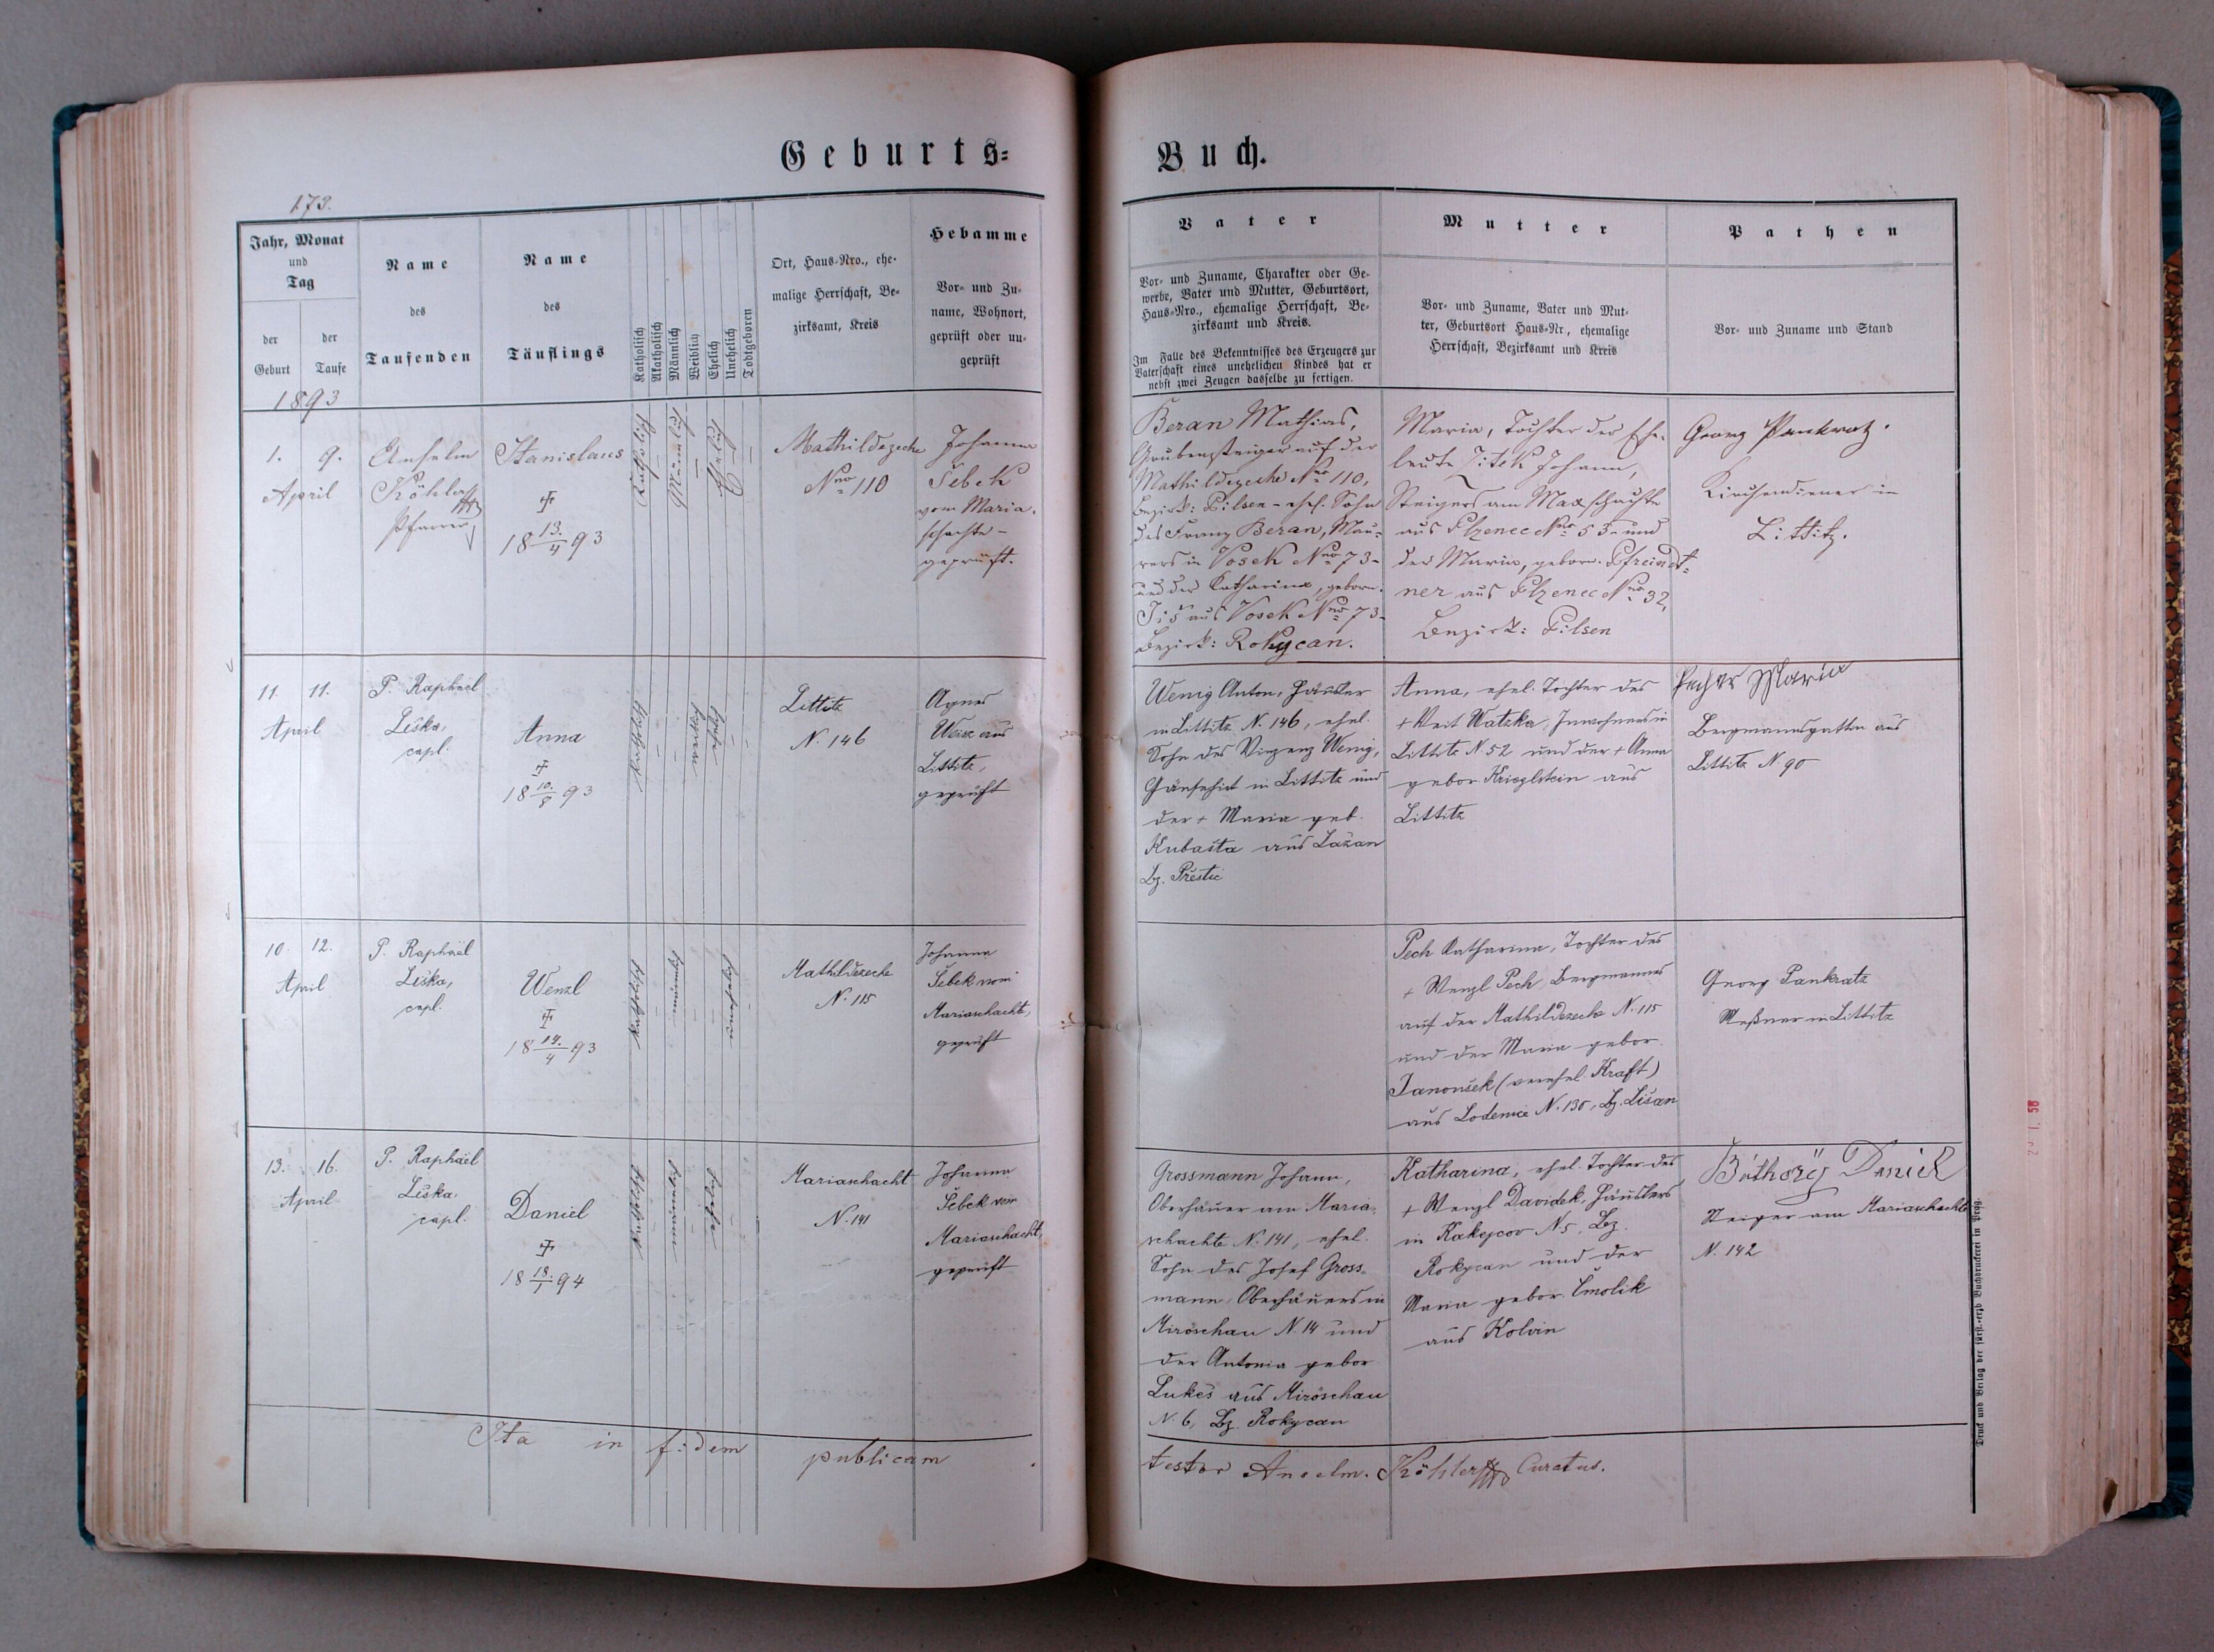 Geburts=
Buch.
173.
Jahr, Monat
und
Tag
der
Geburt
der
Taufe
1893
Name
des
Taufenden
Name
des
Täuflings
Katholisch
Akatholisch
Männlich
Weiblich
Ehelich
Unehelich
Todtgeboren
Ort, Haus-Nro., ehe-
malige Herrschaft, Be-
zirksamt, Kreis
Hebamme
Vor- und Zu-
name, Wohnort,
geprüft oder un-
geprüft
Vater
Vor- und Zuname, Charakter oder Ge-
werbe, Vater und Mutter, Geburtsort,
Haus-Nro., ehemalige Herrschaft, Be-
zirksamt und Kreis.
Im Falle des Bekenntnisses des Erzeugers zur
Vaterschaft eines unehelichen Kindes hat er
nebst zwei Zeugen dasselbe zu fertigen.
Mutter
Vor- und Zuname, Vater und Mut-
ter, Geburtsort Haus-Nr., ehemalige
Herrschaft, Bezirksamt und Kreis
Pathen
Vor- und Zuname und Stand
1. 9.
April
Anselm
Köhler
Pfarrer
Stanislaus
18 13./4 93
Mathildezeche
Nro 110
Johanna
Šebek
vom Maria-
schachte -
geprüft.
Beran Mathias,
Grubensteiger auf der
Mathildezeche Nro 110,
Bezirk: Pilsen - ehel. Sohn
des Franz Beran, Mau-
rers in Vosek Nro 73 -
und der Katharina, geborn.
aus Vosek Nro 73 -
Bezirk: Rokycan.
Maria, Tochter der Ehe-
leute Zitek Johann,
Steigers am Maxschachte
aus Plzenec Nro 53 - und
der Maria, geborn. Pfreindt-
ner aus Plzenec Nro 32,
Bezirk: Pilsen
Georg Pankratz.
Kirchendiener in
Littitz.
11. 11.
April
P. Raphael
Liška,
capl.
Anna
18 10./8 93
Littitz
N. 146
Agnes
Weisz aus
Littitz,
geprüft
Wenig Anton, Häusler
in Littitz N. 146, ehel.
Sohn des Vinzenz Wenig,
Gänsehirt in Littitz und
der + Maria geb.
Kubašta aus Lažan
Bz. Přestic
Anna, ehel. Tochter des
+ Veit Watzka, Inwohners in
Littitz N. 52 und der + Anna
gebor. Krieglstein aus
Littitz
Maria
Bergmannsgattin aus
Littitz N. 90
10. 12.
April
P. Raphael
Liška,
capl.
Wenzl
18 14./4 93
Mathildezeche
N. 115
Johanna
Šebek vom
Mariaschacht,
geprüft
Pech Katharina, Tochter des
+ Wenzl Pech, Bergmannes
auf der Mathildezeche N. 115
und der Maria gebor.
Janoušek (verehel. Kraft)
aus Lodenice N. 130, Bz. Lišan
Georg Pankratz
Meßner in Littitz
13. 16.
April
P. Raphael
Liška,
capl.
Daniel
18 18./1 94
Mariaschacht
N. 141
Johanna
Šebek vom
Mariaschacht,
geprüft
Grossmann Johann,
Oberhäuer am Maria-
schachte N. 141, ehel.
Sohn des Josef Gross-
mann, Oberhäuers in
Miröschau N. 14 und
der Antonia gebor
Lukeš aus Miröschau
N. 6, Bz. Rokycan
Katharina, ehel. Tochter des
+ Wenzl Davidek, Häuslers
in Kakejcov N. 5, Bz.
Rokycan und der
Maria gebor. Čmolik
aus Kolvin
Daniel
Steiger am Mariaschachte
N. 142
Ita in fidem publicam
testor Anselm. Köhler Curatus.
Druck und Verlag der fürst.-erzb Buchdruckerei in Prag.